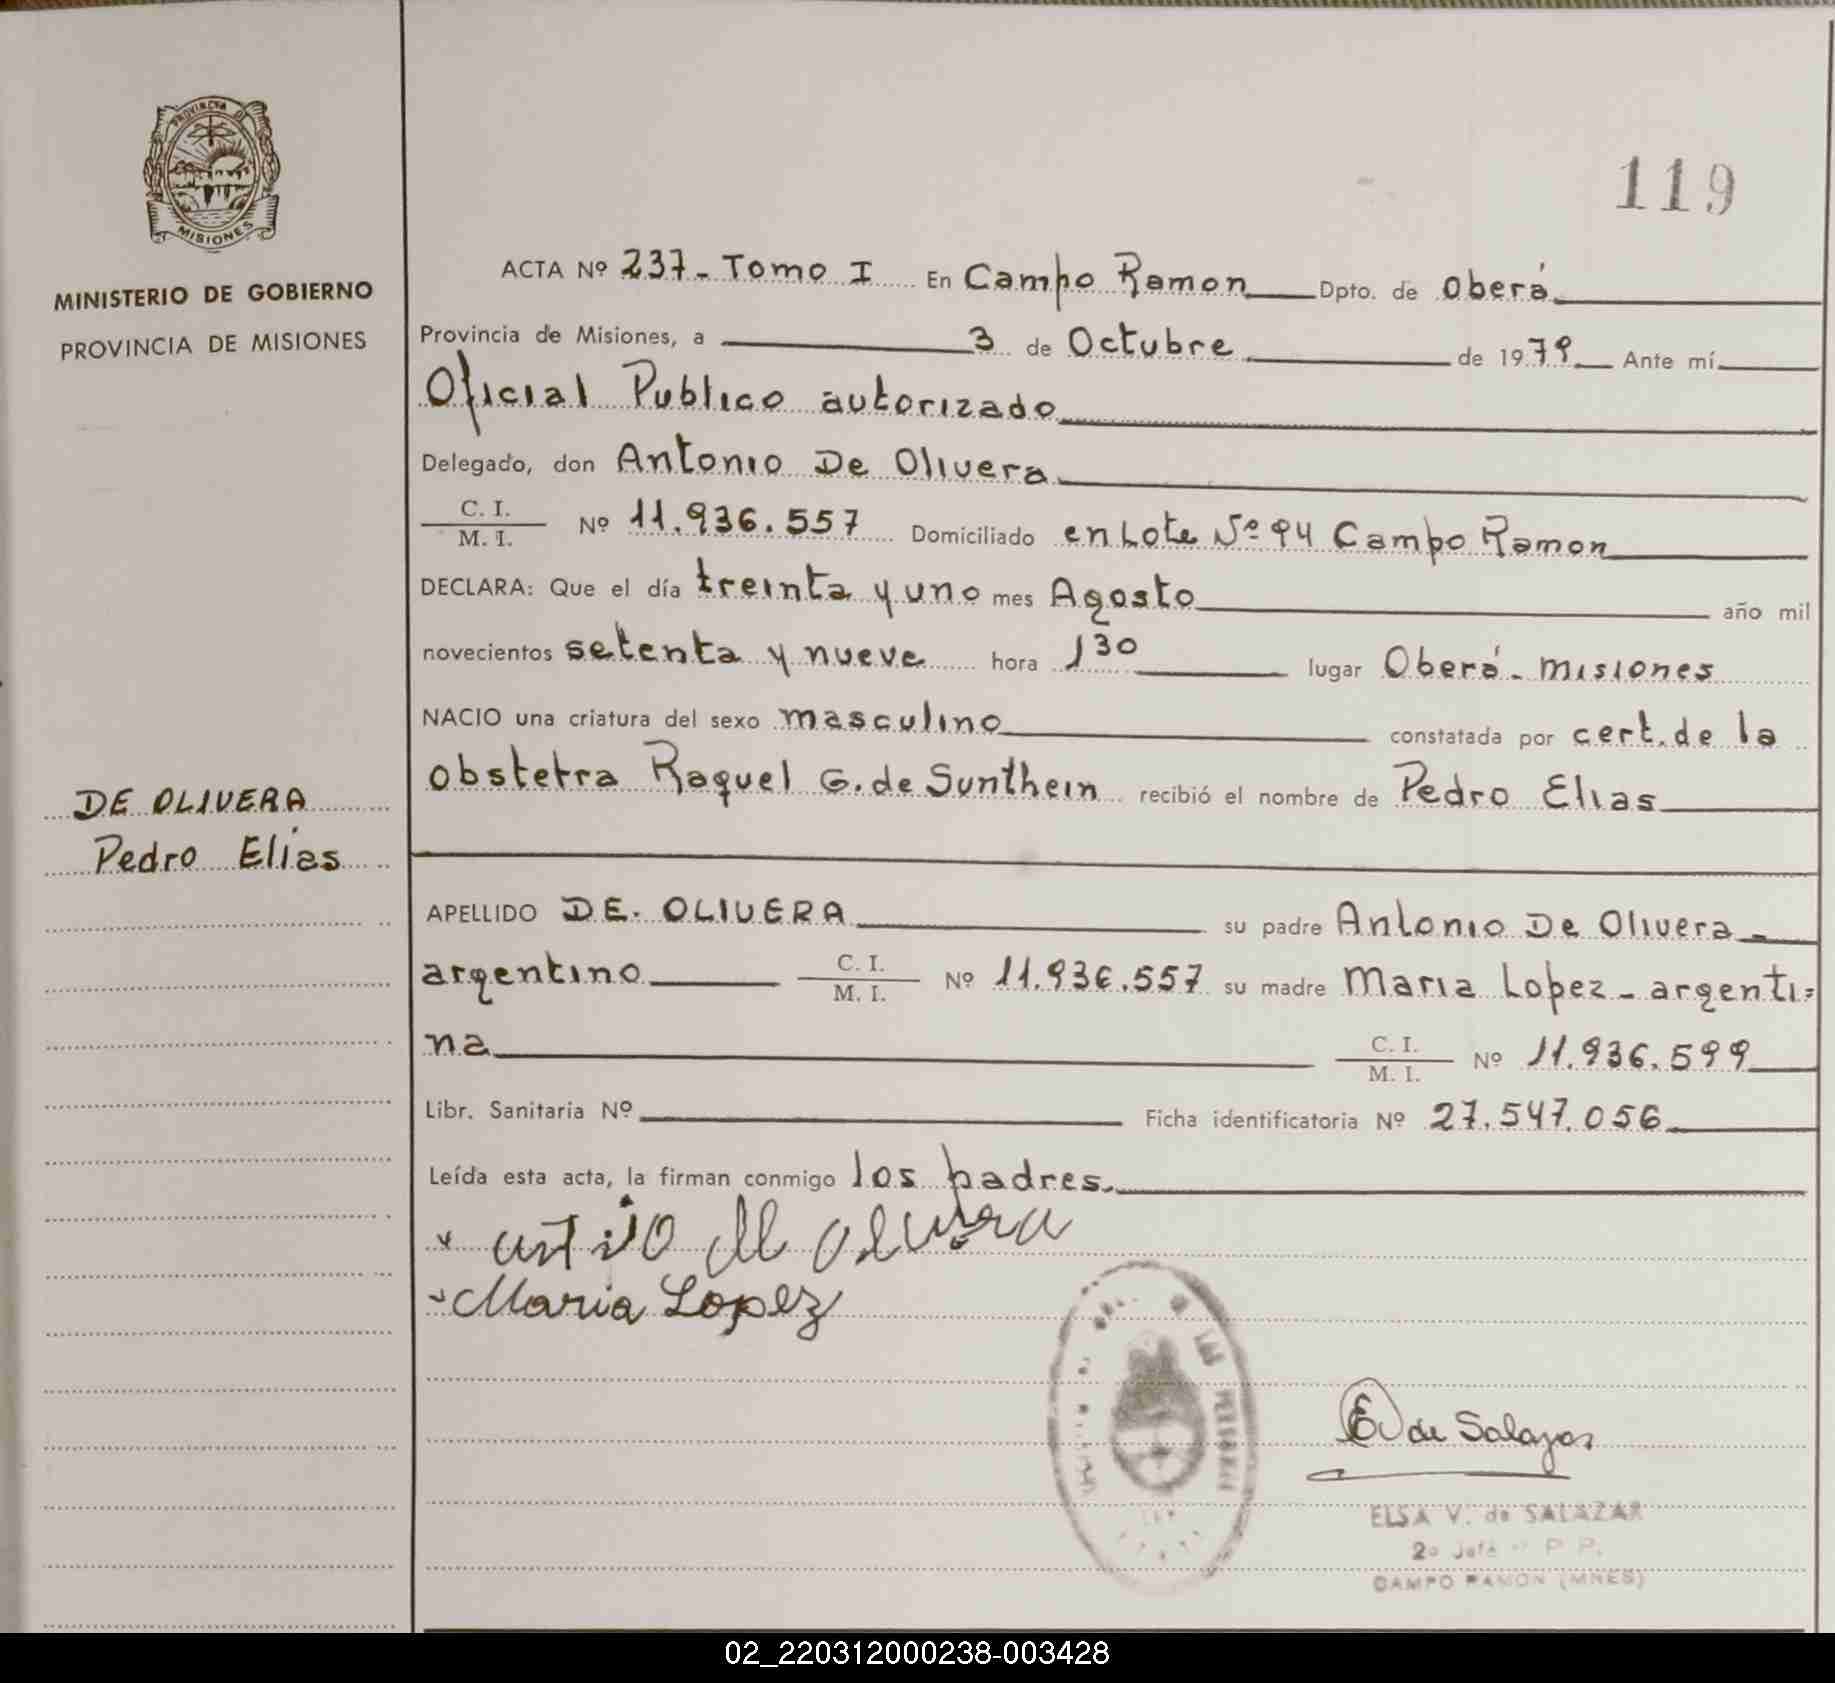 PROVINCIA DE
MISIONES
MINISTERIO DE GOBIERNO
PROVINCIA DE MISIONES
119
ACTA Nº 237 - Tomo I En Campo Ramon Dpto. de Oberá
Provincia de Misiones, a 3 de Octubre de 1979 Ante mí
Oficial Publico autorizado
Delegado, don Antonio De Olivera
C. I.
M. I. Nº 11.936.557 Domiciliado en Lote Nº 94 Campo Ramon
DECLARA: Que el día treinta y uno mes Agosto año mil
novecientos setenta y nueve hora 1 30 lugar Oberá - misiones
NACIO una criatura del sexo masculino constatada por cert. de la
obstetra Raquel G. de Sunthein recibió el nombre de Pedro Elias
DE OLIVERA
Pedro Elías
APELLIDO DE. OLIVERA su padre Antonio De Olivera -
argentino C. I.
M. I. Nº 11.936.557 su madre Maria Lopez - argenti=
na C. I.
M. I. Nº 11.936.599
Libr. Sanitaria Nº Ficha identificatoria Nº 27.547.056
Leída esta acta, la firman conmigo los padres.
Maria Lopez
DE LAS PERSONAS
E V de Salazar
ELSA V. de SALAZAR
2º Jefe P. P.
CAMPO RAMON (MNES)
02_220312000238-003428